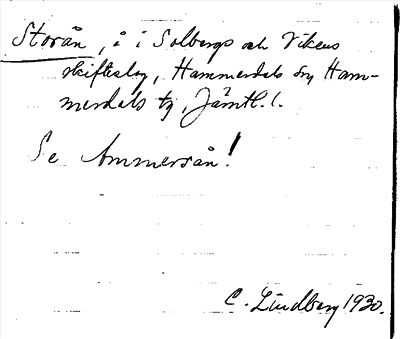 Storån, å i Solbergs och Vikens
skifteslag, Hammerdals sn, Ham-
merdals tg, Jämtl. l.
Se Ammerån!
C. Lindberg 1930.